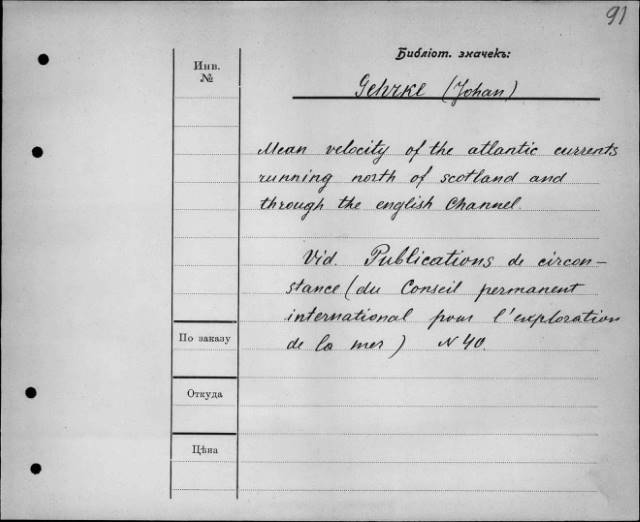 91
Библіот. значекъ:
Инв.
№
Gehrke (Johan)
Mean velocity of the atlantic currents
running north of scotland and
through the english Channel.
Vid. Publications de circon-
stance (du Conseil permanent
international pour l'exploration
de la mer) N 40
По заказу
Откуда
Цѣна